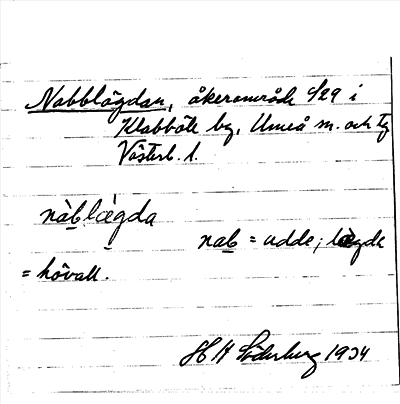 Nabblägdan, åkerområde 1/29 i
Klabböle by, Umeå sn. och tg
Västerb. l.
nàb̲lægda
nab̲ = udde; lægde
= hövall.
H H Söderberg 1934